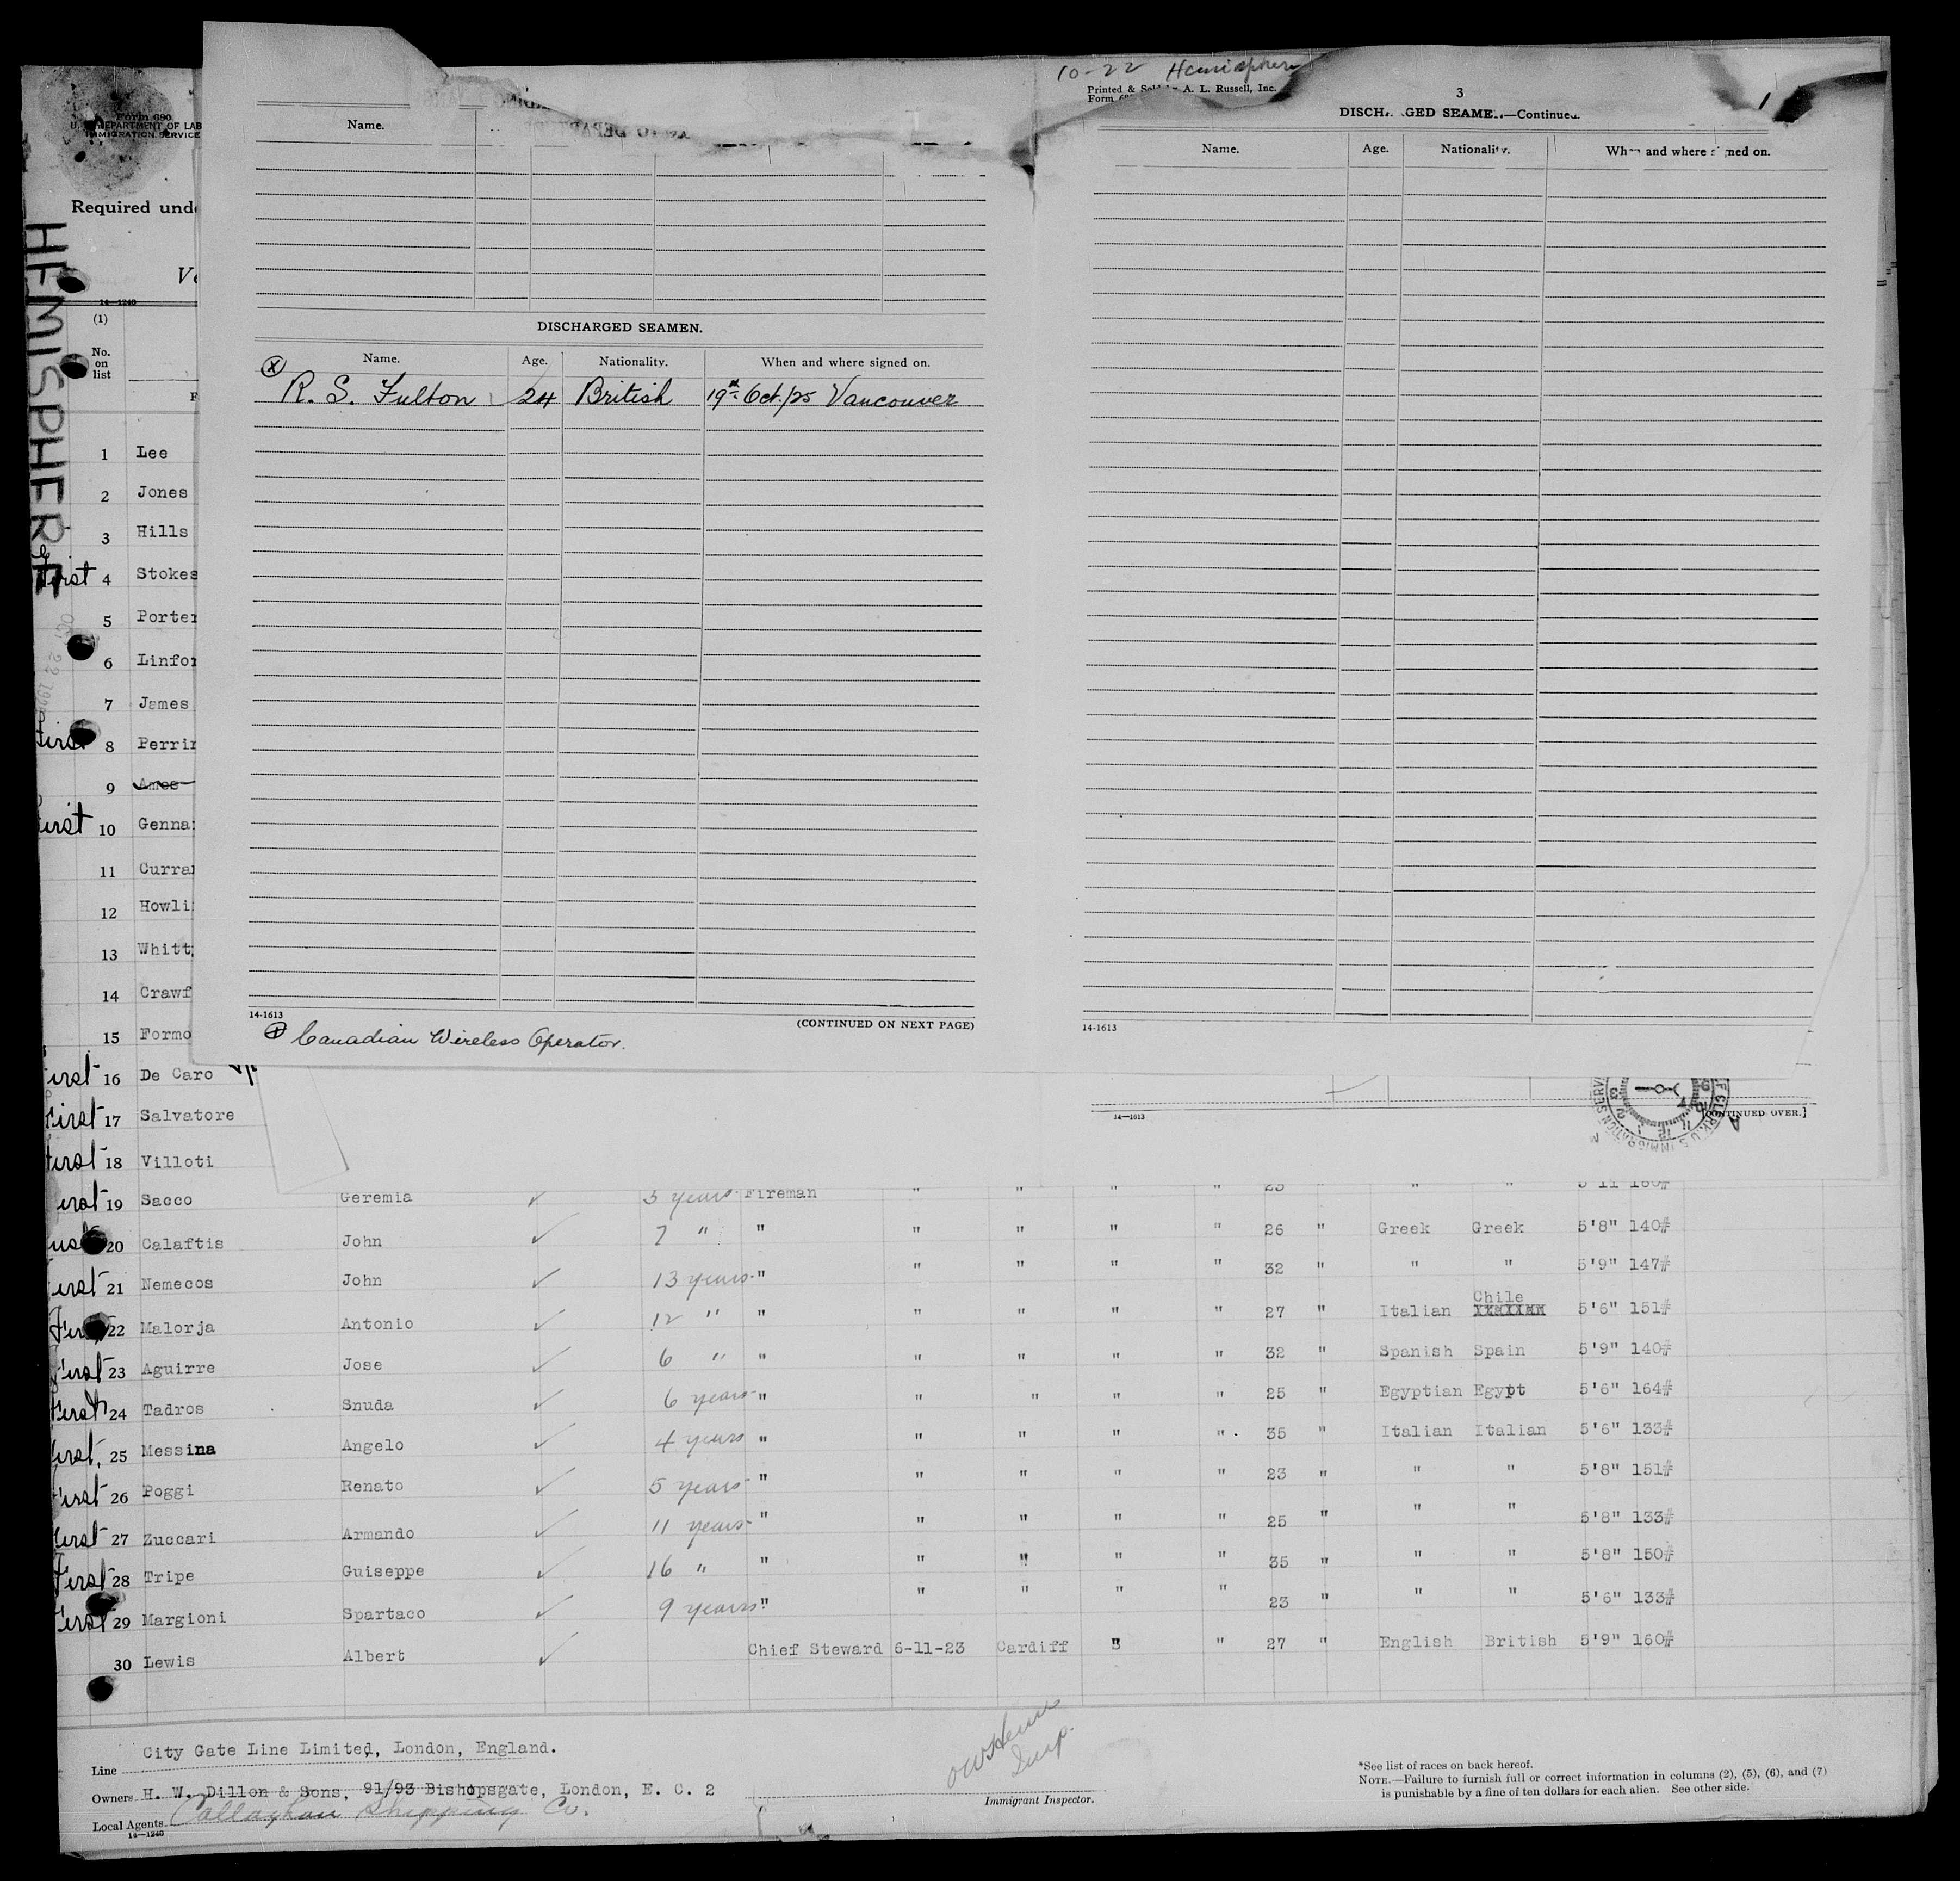 10-22 Hemisphere
Printed & Sold by A. L. Russell, Inc.
Form
3
DISCHARGED SEAMEN.—Continued.
Name. Age. Nationality. When and where signed on.
Name.
DISCHARGED SEAMEN.
Name. Age. Nationality. When and where signed on.
R. S. Fulton 24 British 19th Oct./25 Vancouver
14-1613
(CONTINUED ON NEXT PAGE)
Canadian Wireless Operator.
14-1613
Form 680
U. S. DEPARTMENT OF LAB
IMMIGRATION SERVICE
Required unde
Ve
14-1240
HEMISPHERE
(1)
No. on list
F
1 Lee
2 Jones
3 Hills
First 4 Stokes
5 Porter
6 Linfor
7 James
First 8 Perrin
9 Ames
First 10 Genna
11 Curra
12 Howli
13 Whitt
14 Crawf
15 Formo
First 16 De Caro
First 17 Salvatore
14—1613
[CONTINUED OVER.]
First 18 Villoti
First 19 Sacco Geremia 5 years Fireman " " " " 23 " " " 5'11 160#
20 Calaftis John 7 " " " " " " 26 " Greek Greek 5'8" 140#
First 21 Nemecos John 13 years " " " " " 32 " " " 5'9" 147#
Chile
First 22 Malorja Antonio 12 " " " " " " 27 " Italian XXXXXXX 5'6" 151#
First 23 Aguirre Jose 6 " " " " " " 32 " Spanish Spain 5'9" 140#
First 24 Tadros Snuda 6 years " " " " " 25 " Egyptian Egypt 5'6" 164#
First 25 Messina Angelo 4 years " " " " " 35 " Italian Italian 5'6" 133#
First 26 Poggi Renato 5 years " " " " " 23 " " " 5'8" 151#
First 27 Zuccari Armando 11 years " " " " " 25 " " " 5'8" 133#
First 28 Tripe Guiseppe 16 " " " " " " 35 " " " 5'8" 150#
First 29 Margioni Spartaco 9 years " " " " " 23 " " " 5'6" 133#
30 Lewis Albert Chief Steward 6-11-23 Cardiff " " 27 " English British 5'9" 160#
Line City Gate Line Limited, London, England.
Owners H. W. Dillon & Sons, 91/93 Bishopsgate, London, E. C. 2
Local Agents Callaghan Shipping Co.
14—1240
Insp.
Immigrant Inspector.
*See list of races on back hereof.
NOTE.—Failure to furnish full or correct information in columns (2), (5), (6), and (7)
is punishable by a fine of ten dollars for each alien. See other side.